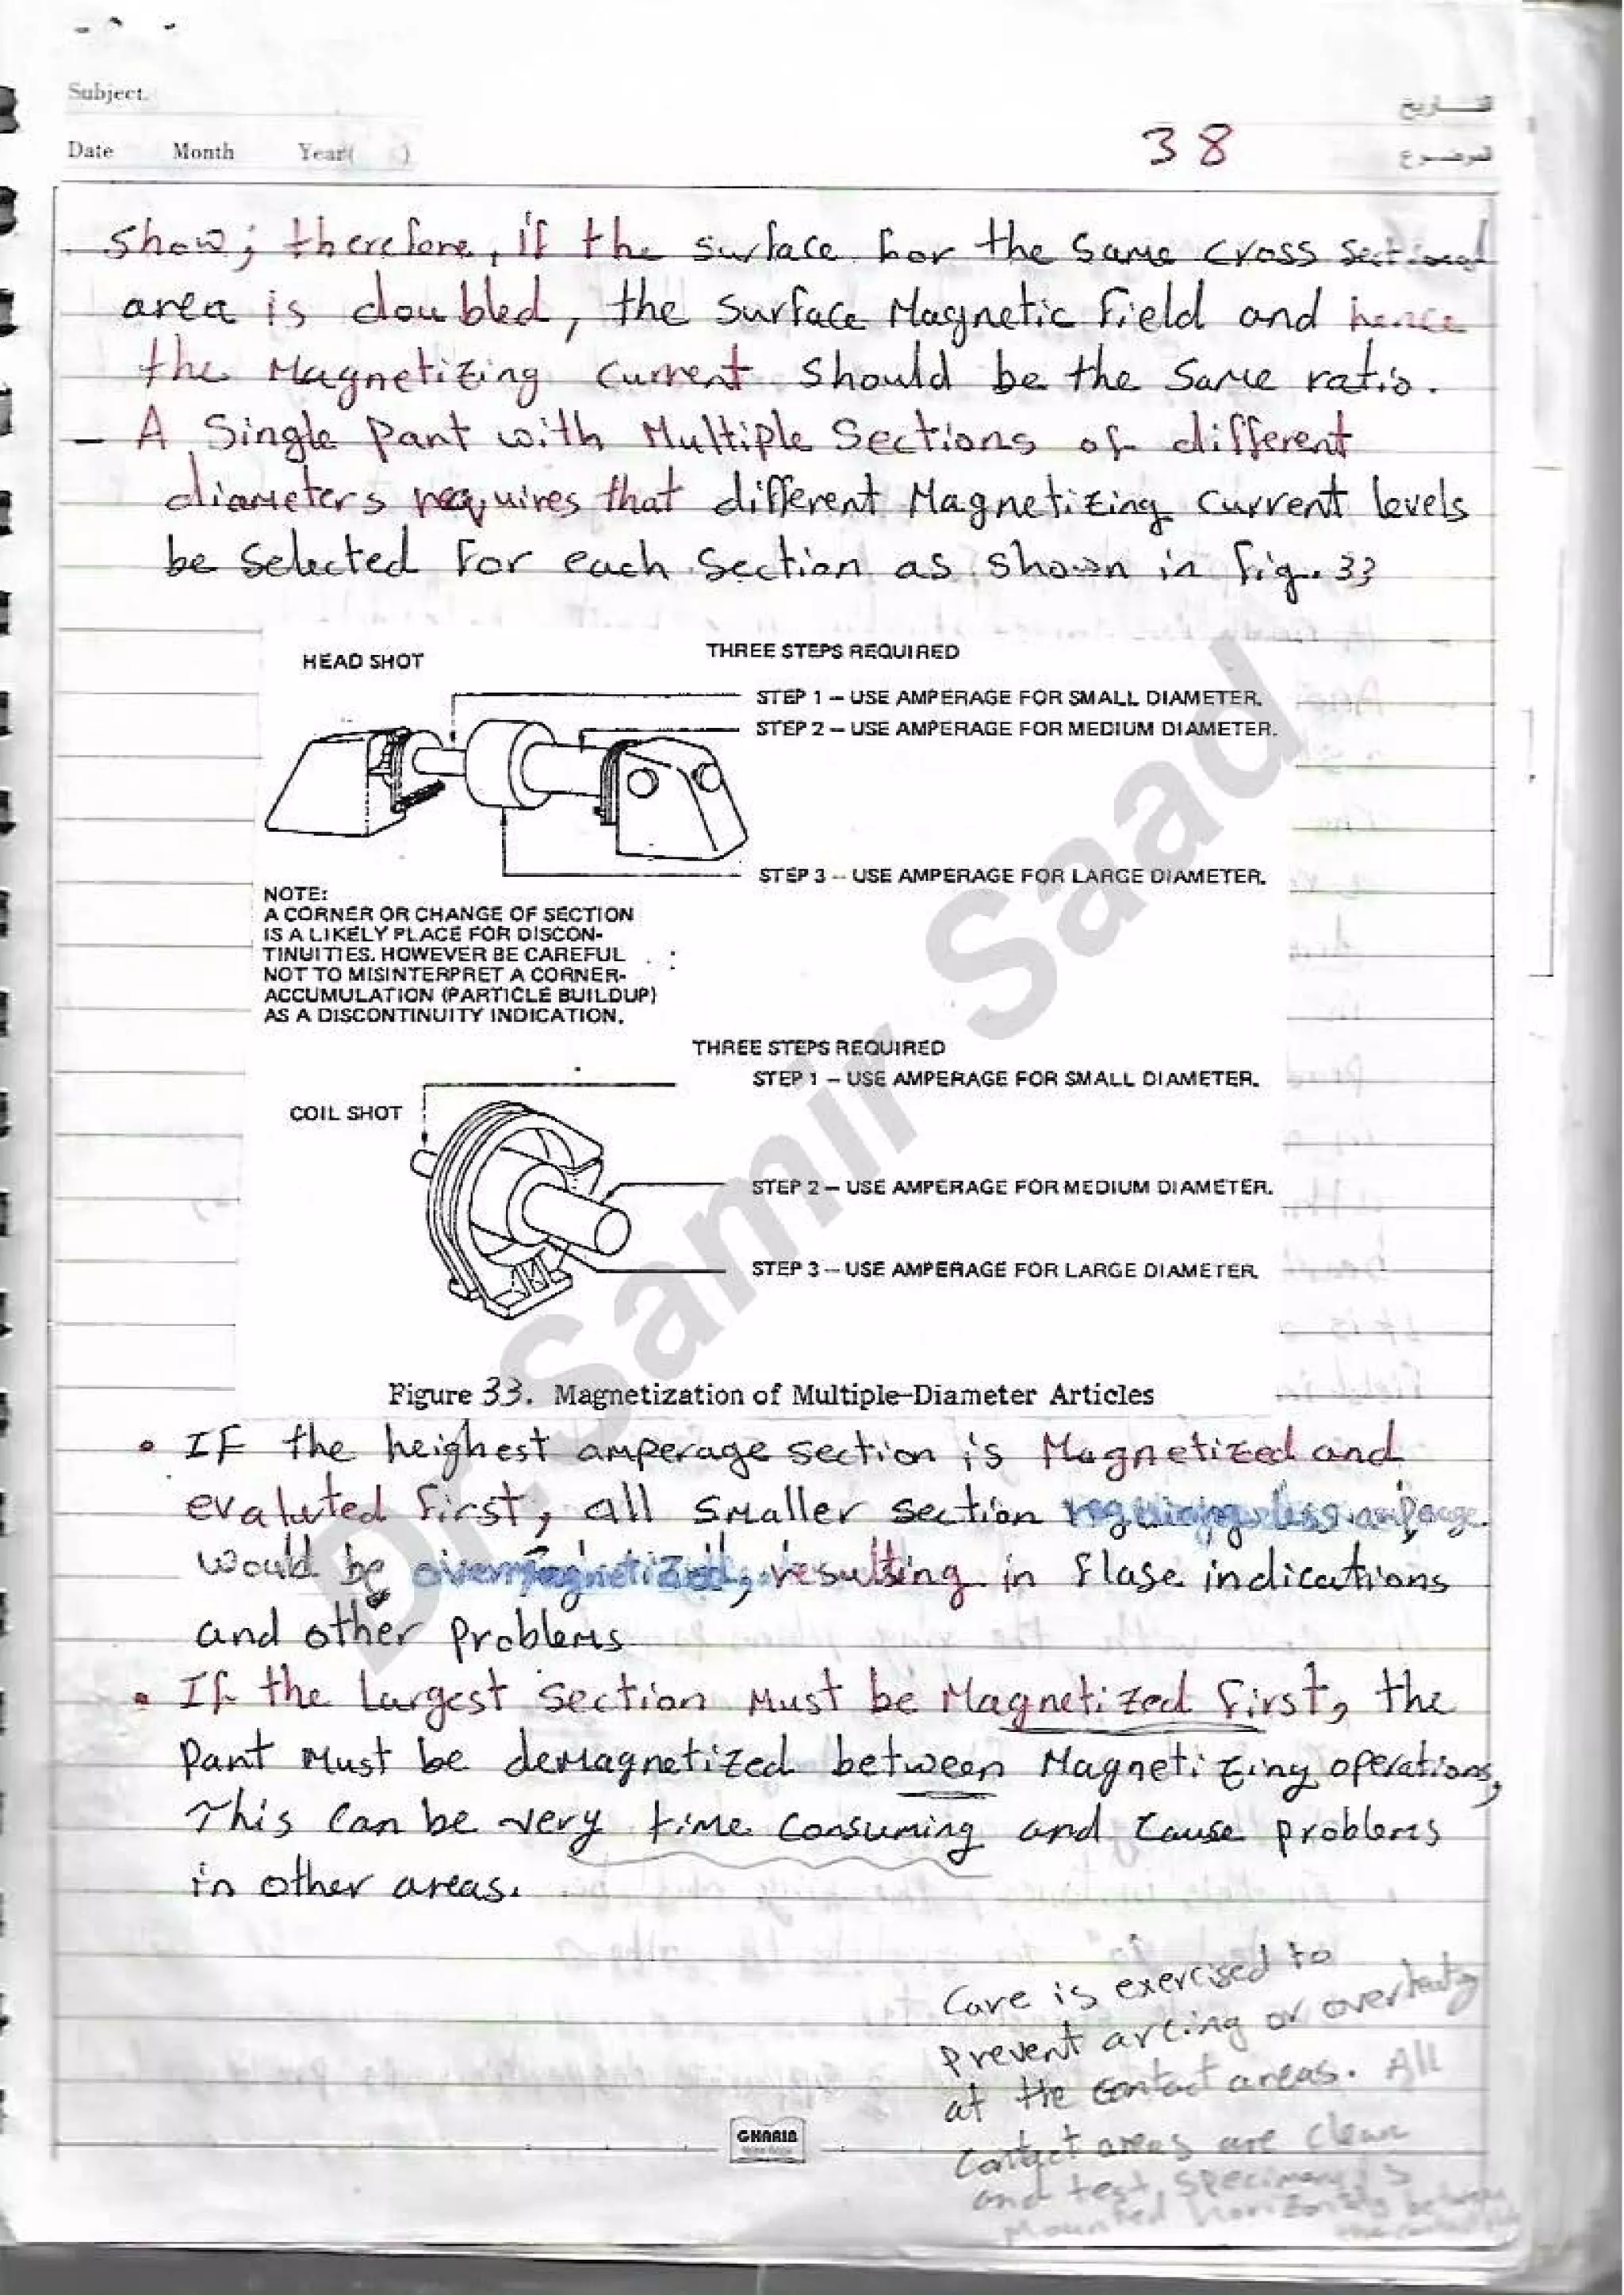 Subject.
التـــاريخ
Date Month Year( )
38
الموضـــوع
show; therefore, if the surface for the same cross sectional
area is doubled, the surface Magnetic field and hence
the Magnetizing current should be the same ratio.
- A Single part with Multiple Sections of different
diameters requires that different Magnetizing current levels
be selected for each section as shown in fig. 33
HEAD SHOT
THREE STEPS REQUIRED
STEP 1 – USE AMPERAGE FOR SMALL DIAMETER.
STEP 2 – USE AMPERAGE FOR MEDIUM DIAMETER.
STEP 3 – USE AMPERAGE FOR LARGE DIAMETER.
NOTE:
A CORNER OR CHANGE OF SECTION
IS A LIKELY PLACE FOR DISCON-
TINUITIES. HOWEVER BE CAREFUL
NOT TO MISINTERPRET A CORNER-
ACCUMULATION (PARTICLE BUILDUP)
AS A DISCONTINUITY INDICATION.
THREE STEPS REQUIRED
STEP 1 – USE AMPERAGE FOR SMALL DIAMETER.
COIL SHOT
STEP 2 – USE AMPERAGE FOR MEDIUM DIAMETER.
STEP 3 – USE AMPERAGE FOR LARGE DIAMETER.
Figure 33. Magnetization of Multiple-Diameter Articles
• IF the heighest amperage section is Magnetized and
evaluted first, all smaller section requiring less amperage
would be overmagnetized, resulting in flase indications
and other problems
• If the largest section must be Magnetized first, the
part must be demagnetized between Magnetizing operations,
This can be very time consuming and cause problems
in other areas.
Care is exercised to
prevent arcing or overheating
at the contact areas. All
contact areas are clean
and test specimen is
mounted horizontally between
GHARIB
Dr. Samir Saad